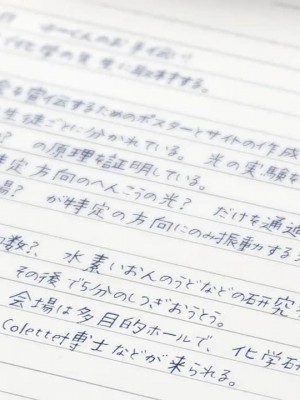 ーくんのお手伝い
化学の先生に取材する。
会を宣伝するためのポスターとサイトの作成
生徒ごとに分かれている。 光の実験を
? の原理を証明している。
特定方向のへんこうの光? だけを通過
場? が特定の方向にのみ振動する
数?、 水素いおんのうどなどの研究
その後で5分のしつぎおうとう。
会場は多目的ホールで、 化学研
Colette博士などが来られる。